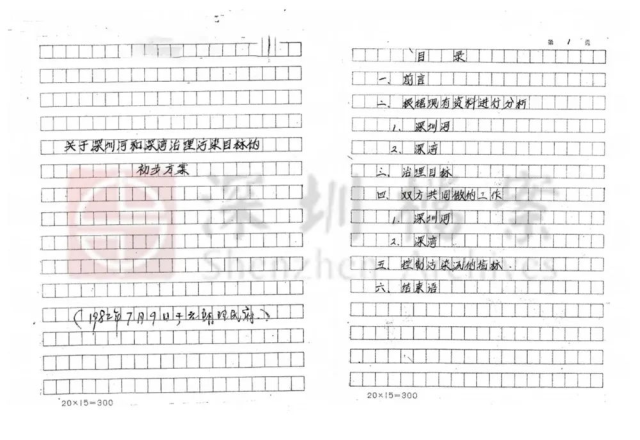 关于深圳河和深湾治理污染目标的
初步方案
(1982年7月9日于元朗理民府)
20×15=300
第 1 页
目 录
一、前言
二、根据现有资料进行分析
1. 深圳河
2. 深湾
三、治理目标
四、双方共同做的工作
1. 深圳河
2. 深湾
五、控制污染源的指标
六、结束语
20×15=300
深圳档案
Shenzhen Archives